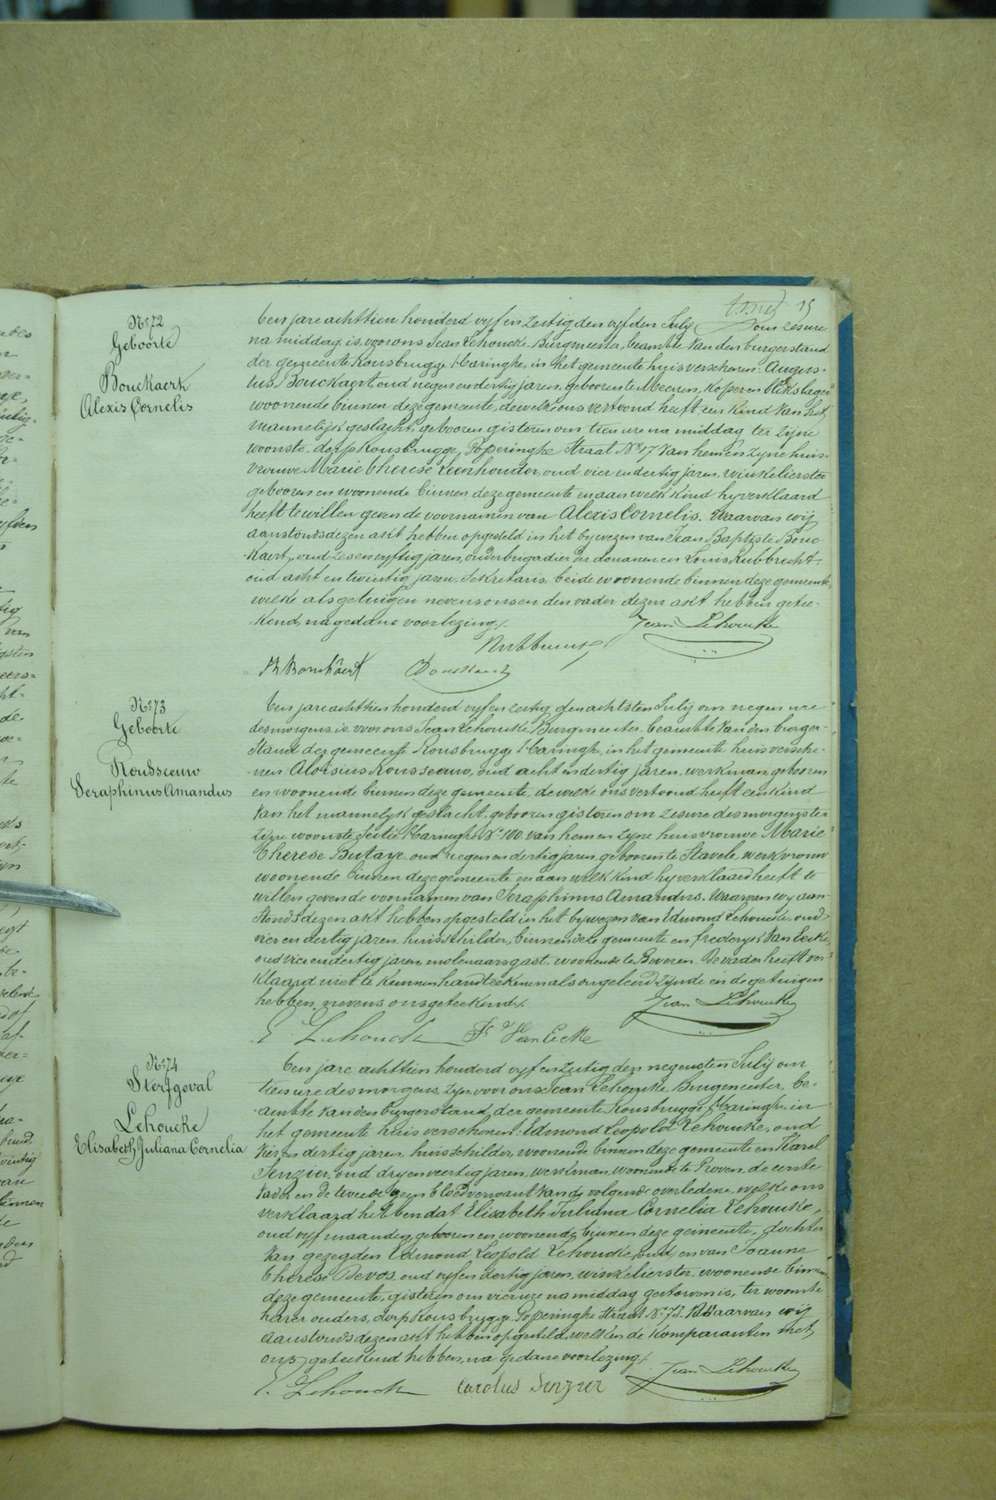 15
N° 72
Geboorte
Bouckaert
Alexis Cornelis
Den jare achttien honderd vyf en zestig den vyfden July om zes ure
na middag is voor ons Jean Lehoucke Burgmeester, beambte van den burgerstand
der gemeente Rousbrugge Haringhe, in het gemeente huis verschenen Augus-
tus Bouckaert oud negen en dertig jaren, geboren te Meenen, koper en blikslager
woonende binnen deze gemeente, dewelke ons vertoond heeft een kind van het
mannelyk geslacht, geboren gisteren om tien ure na middag ter zyne
woonste dorp Rousbrugge, Poperinghe Straat N° 17 van hem en zyne huis-
vrouwe Marie Therese Leenhouder, oud vier en dertig jaren, winkelierster
geboren en woonende binnen deze gemeente en aan welk kind hy verklaard
heeft te willen geven de voornamen van Alexis Cornelis. Waarvan wy
aanstonds dezen akt hebben opgesteld in het bywezen van Jean Baptiste Bouc-
kaert, oud zes en vyftig jaren, onderbrigadier der douanen en Louis Rubbrecht
oud acht en twintig jaren, Sekretaris, beide woonende binnen deze gemeente,
welke als getuigen nevens ons en den vader dezen akt hebben getee-
kend, na gedane voorlezing.
Jean Lehoucke
Rubbrecht
JB Bouckaert
N° 73
Geboorte
Rousseeuw
Seraphinus Amandus
Den jare achttien honderd vyf en zestig, den achtsten July om negen ure
des morgens is voor ons Jean Lehoucke Burgmeester, beambte van den burger-
stand der gemeente Rousbrugge Haringhe, in het gemeente huis versche-
nen Aloïsius Rousseeuw, oud acht en dertig jaren, werkman, geboren
en woonende binnen deze gemeente, dewelke ons vertoond heeft een kind
van het mannelyk geslacht, geboren gisteren om zes ure des morgens ter
zyne woonste Sectie Haringhe N° 100, van hem en zyne huisvrouwe Marie
Therese Butaye, oud negen en dertig jaren, geboren te Stavele, werkvrouw
woonende binnen deze gemeente en aan welk kind hy verklaard heeft te
willen geven de voornamen van Seraphinus Amandus. Waarvan wy aan-
stonds dezen akt hebben opgesteld in het bywezen van Edmond Lehoucke, oud
vier en dertig jaren, huisschilder, binnen deze gemeente en frederyk Van Eecke,
oud vier en dertig jaren, molenaarsgast, woonende te Beveren. De vader heeft ver-
klaard niet te kunnen handteekenen als ongeleerd zynde en de getuigen
hebben nevens ons geteekend.
Jean Lehoucke
E. Lehoucke
Fr Van Eecke
N° 74
Sterfgeval
Lehoucke
Elisabeth Juliana Cornelia
Den jare achttien honderd vyf en zestig den negensten July om
tien ure des morgens, zyn voor ons Jean Lehoucke Burgmeester, be-
ambte van den burgerstand der gemeente Rousbrugge Haringhe in
het gemeente huis verschenen: Edmond Leopold Lehoucke, oud
vier en dertig jaren, huisschilder, woonende binnen deze gemeente en Karel
Senzier, oud dry en veertig jaren, werkman, woonende te Proven, de eerste
vader en de tweede geen bloedverwant van de volgende overledene, welke ons
verklaard hebben dat Elisabeth Juliana Cornelia Lehoucke,
oud vyf maanden, geboren en woonende binnen deze gemeente, dochter
van gezegden Edmond Leopold Lehoucke, oud en van Joanne
Therese Devos, oud vyf en dertig jaren, winkelierster, woonende binnen
deze gemeente, gisteren om vier ure na middag gestorven is, ter woonste
harer ouders, dorp Rousbrugge Poperinghe Straat N° 73. Waarvan wy
aanstonds dezen akt hebben opgesteld, welken de komparanten met
ons geteekend hebben, na gedane voorlezing.
Jean Lehoucke
E. Lehoucke
Carolus Senzier